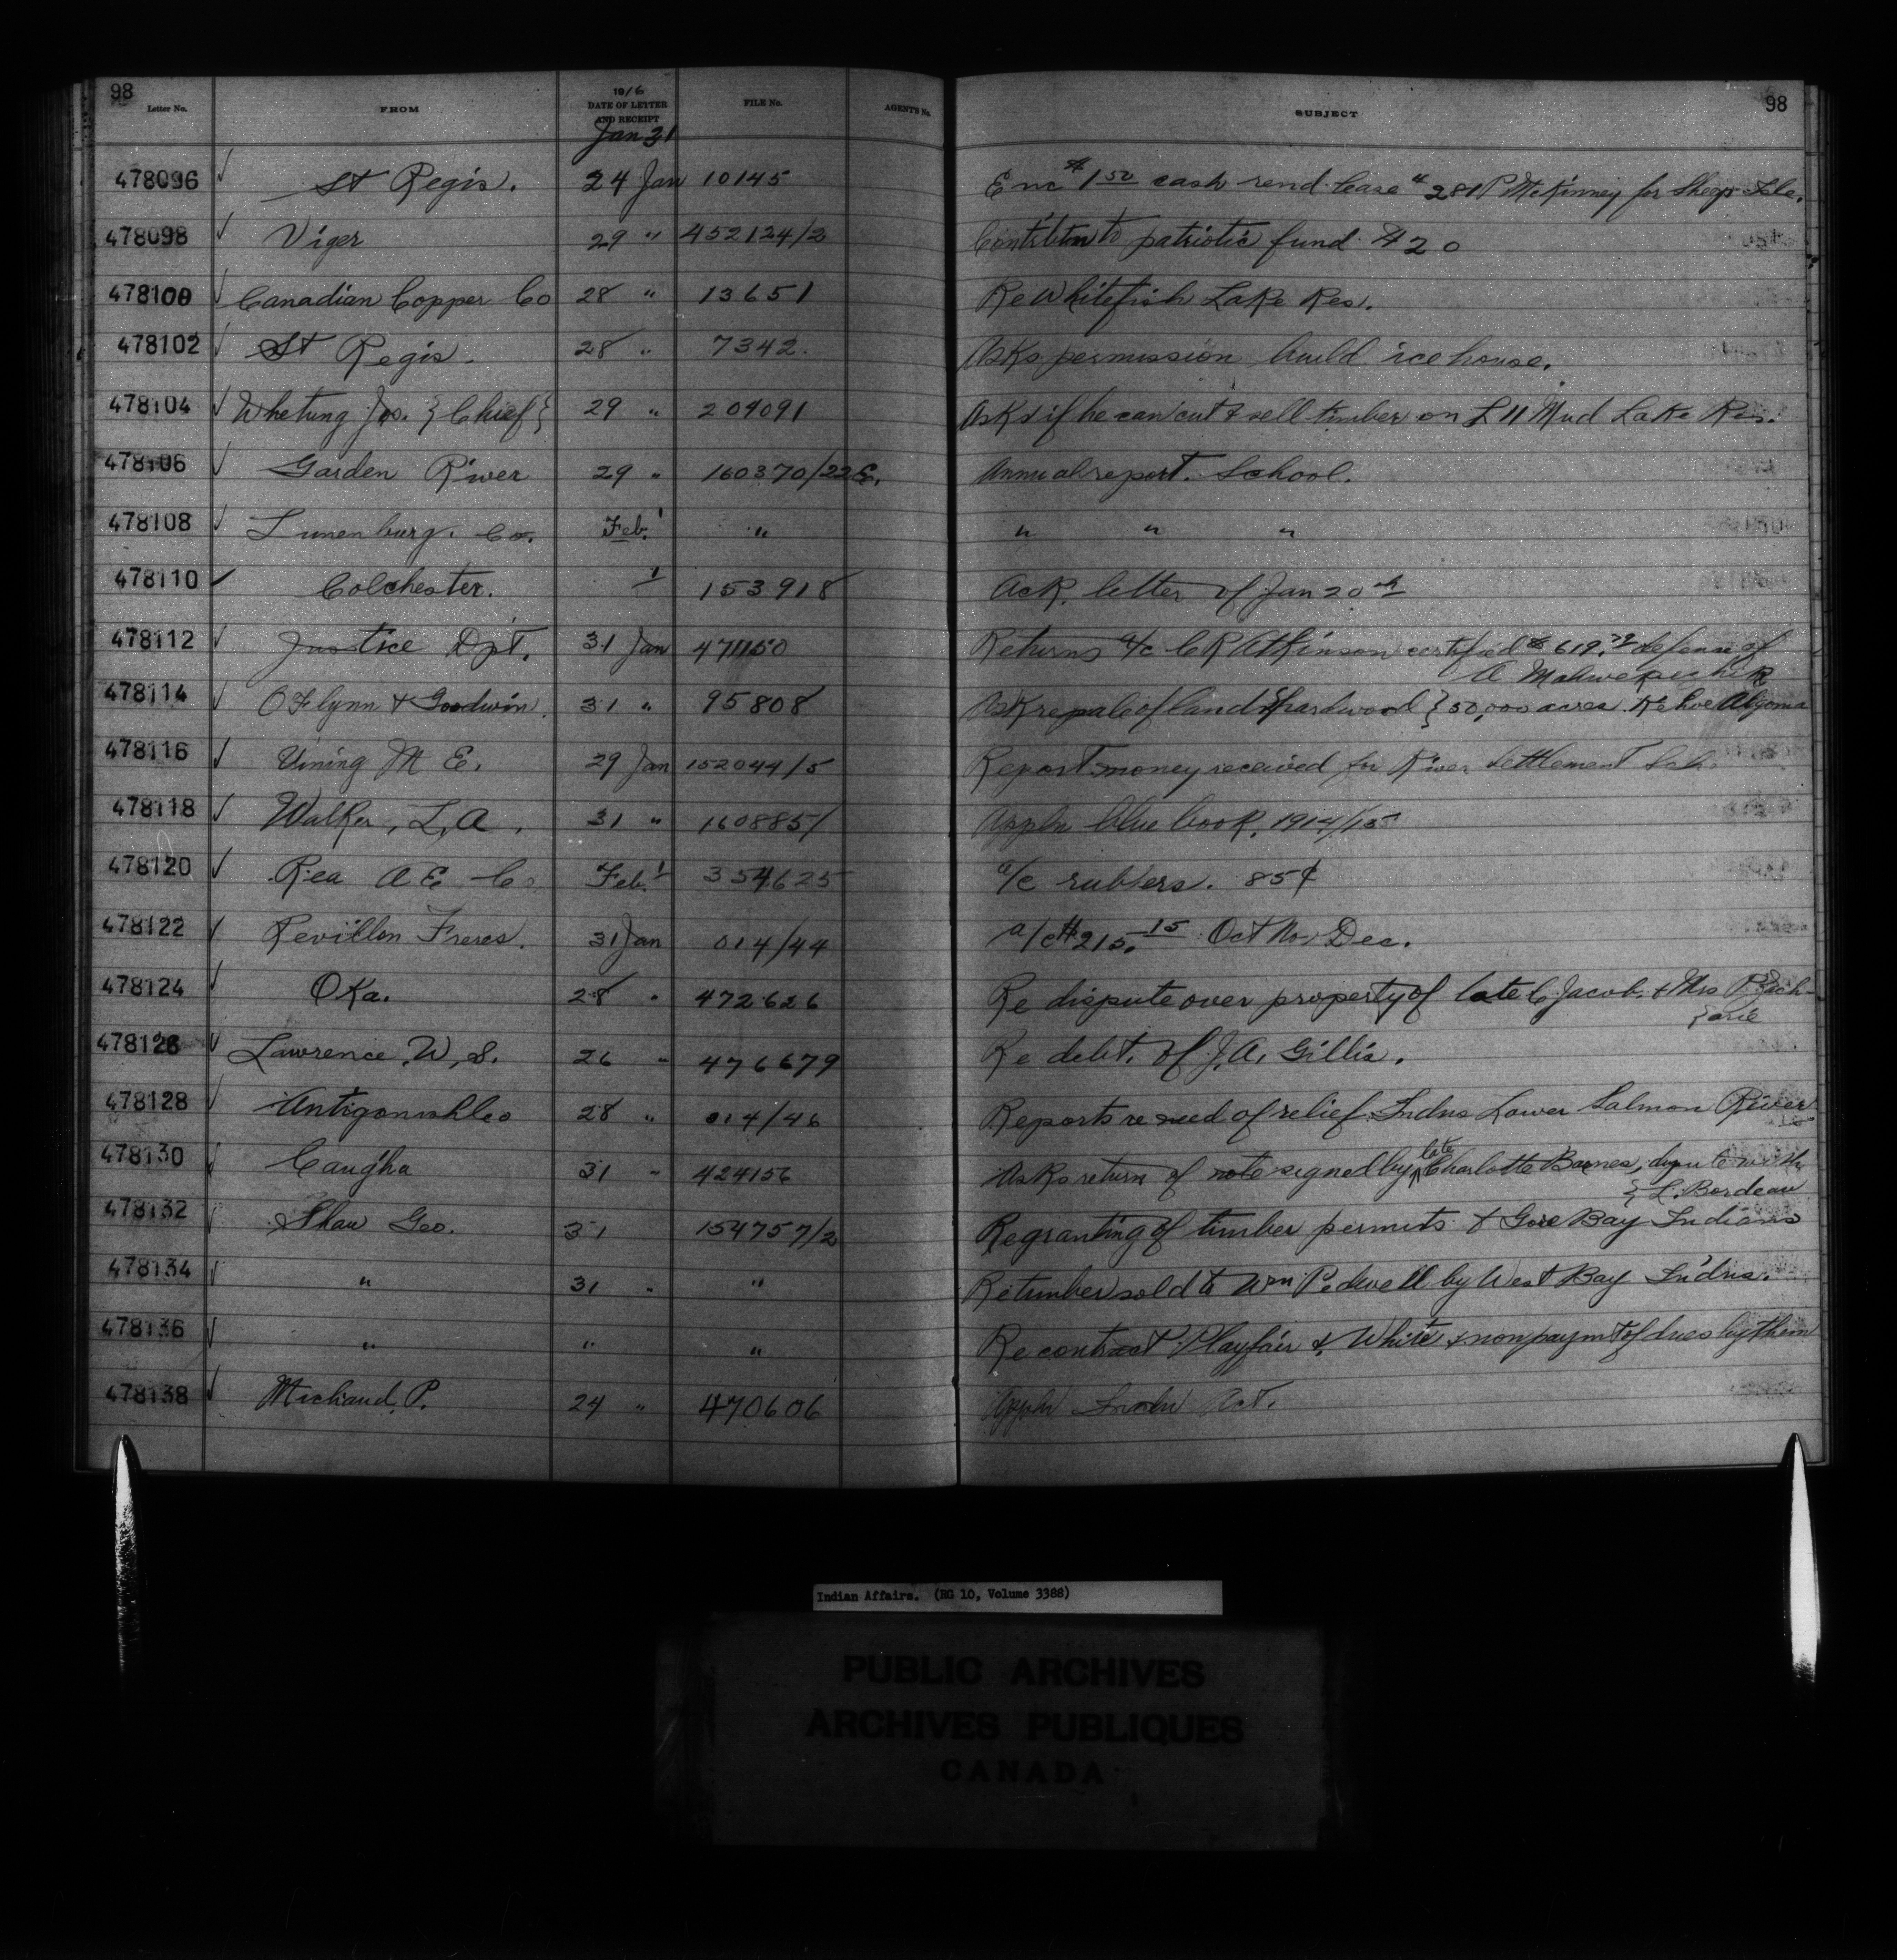 98
Letter No. FROM 1916 DATE OF LETTER AND RECEIPT FILE No. AGENT'S No. SUBJECT 98
Jan 31
478096 ✓ St Regis. 24 Jan 10145 Enc $1 50 cash rend. lease # 281 P McKinney for Sheep Isle.
478098 ✓ Viger 29 " 452124/2 Contribtn to patriotic fund $20
478100 ✓ Canadian Copper Co 28 " 13651 Re Whitefish Lake Res.
478102 ✓ St Regis. 28 " 7342. Asks permission build ice house.
478104 ✓ Whetung Jos. {Chief} 29 " 204091 Asks if he can cut & sell timber on L 11 Mud Lake Res.
478106 ✓ Garden River 29 " 160370/22 E. Annual report. School.
478108 ✓ Lunenburg. Co. Feb. 1 " " " "
478110 ✓ Colchester. 1 153918 Ack. letter of Jan 20th
478112 ✓ Justice Dpt. 31 Jan 471150 Returns a/c C R Atkinson certified $ 619. defense of
A
478114 ✓ O'Flynn & Goodwin. 31 " 95808 Ask re sale of land & hardwood } 50,000 acres. Kehoe Algoma
478116 ✓ Vining M E. 29 Jan 152044/5 Report money received for River Settlement Sch.
478118 ✓ Walker, L, A, 31 " 160885/ Appln blue book, 1914/15
478120 ✓ Rea A E Co. Feb. 1 354625 a/c rubbers. 85¢
478122 ✓ Revillon Freres. 31 Jan 014/44 a/c $215. 15 Oct Nov Dec.
478124 ✓ Oka. 28 " 472626 Re dispute over property of late C Jacob, & Mrs P. Zach-
}arie
478126 ✓ Lawrence, W, S. 26 " 476679 Re debt. of J, A, Gillis.
478128 ✓ Antigonish Co 28 " 014/46 Reports re need of relief Indns Lower Salmon River
478130 ✓ Caugha 31 " 424156 Asks return of note signed by late Charlotte Barnes, dispute with
} L. Bordeau
478132 ✓ Shaw Geo. 31 154757/2 Re granting of timber permits & Gore Bay Indians
478134 ✓ " 31 " " Re timber sold to Wm Pedwell by West Bay Indns.
478136 ✓ " " " Re contract Playfair & White & nonpaymt of dues by them
478138 ✓ Michaud, P. 24 " 470606 Appln Indn Act.
Indian Affairs. (RG 10, Volume 3388)
PUBLIC ARCHIVES
ARCHIVES PUBLIQUES
CANADA